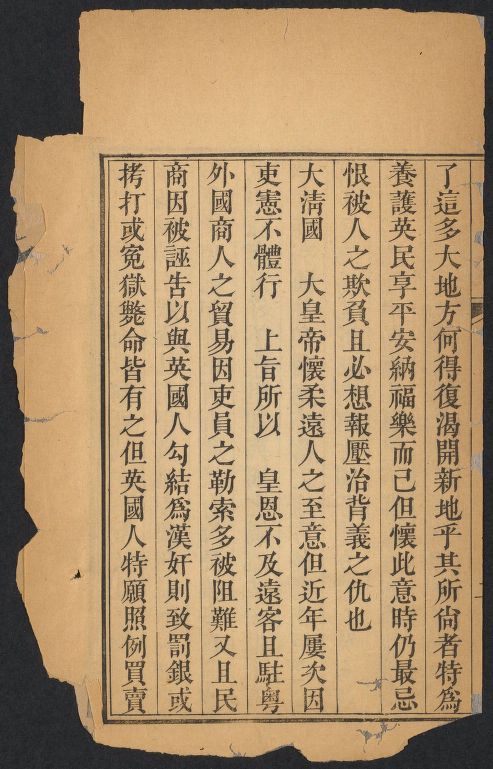 了這多大地方何得復渴開新地乎其所尙者特爲
養護英民享平安納福樂而已但懷此意時仍最忌
恨被人之欺負且必想報壓治背義之仇也
大淸國　大皇帝懷柔遠人之至意但近年屢次因
吏憲不體行　上旨所以　皇恩不及遠客且駐粵
外國商人之貿易因吏員之勒索多被阻難又且民
商因被誣告以與英國人勾結爲漢奸則致罰銀或
拷打或寃獄斃命皆有之但英國人特願照例買賣